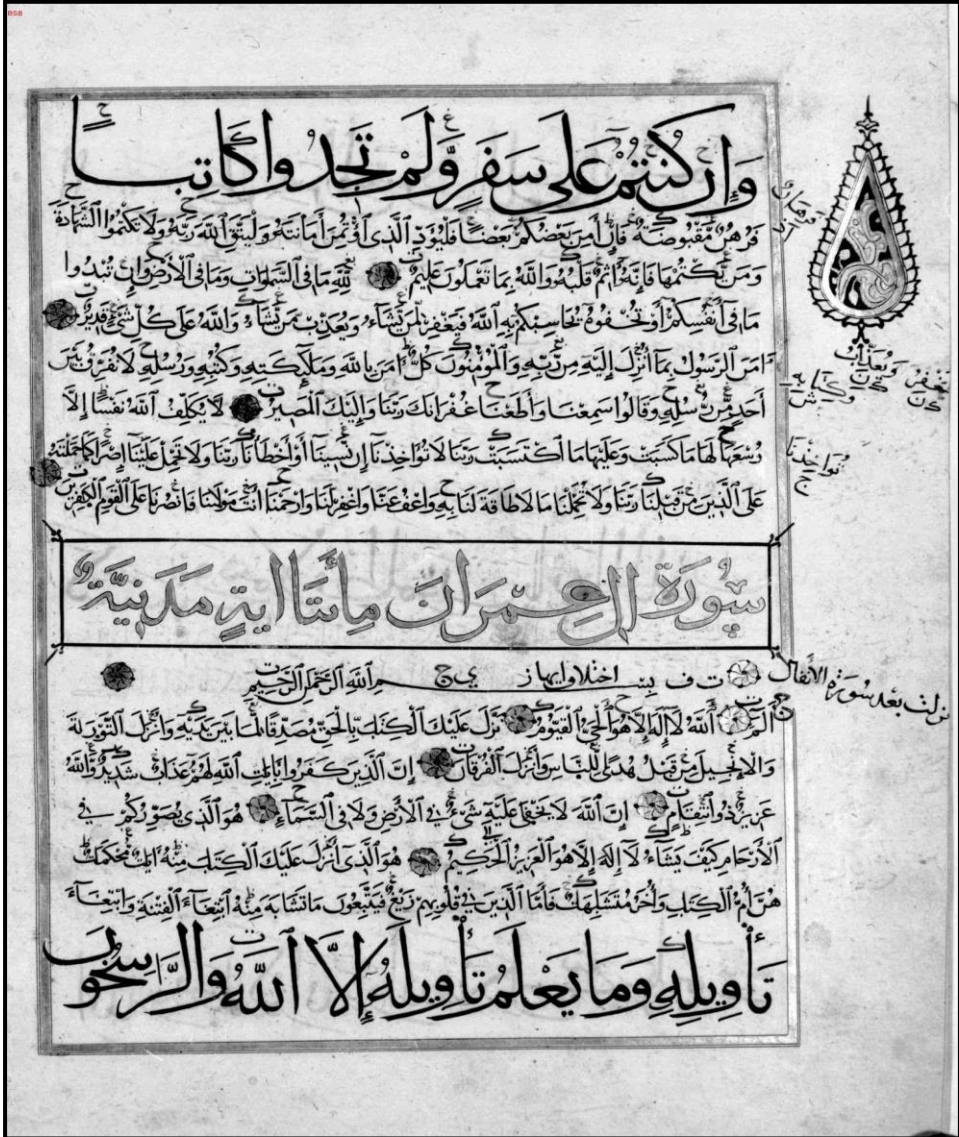 BSB
وَإِن كُنتُمْ عَلَى سَفَرٍ وَلَمْ تَجِدُوا كَاتِبًا
فَرُهُنٌ مَّقْبُوضَةٌ فَإِنْ أَمِنَ بَعْضُكُم بَعْضًا فَلْيُؤَدِّ الَّذِي اؤْتُمِنَ أَمَانَتَهُ وَلْيَتَّقِ اللَّهَ رَبَّهُ وَلَا تَكْتُمُوا الشَّهَادَةَ
وَمَن يَكْتُمْهَا فَإِنَّهُ آثِمٌ قَلْبُهُ وَاللَّهُ بِمَا تَعْمَلُونَ عَلِيمٌ لِلَّهِ مَا فِي السَّمَاوَاتِ وَمَا فِي الْأَرْضِ وَإِن تُبْدُوا
مَا فِي أَنفُسِكُمْ أَوْ تُخْفُوهُ يُحَاسِبْكُم بِهِ اللَّهُ فَيَغْفِرْ لِمَن يَشَاءُ وَيُعَذِّبْ مَن يَشَاءُ وَاللَّهُ عَلَى كُلِّ شَيْءٍ قَدِيرٌ
آمَنَ الرَّسُولُ بِمَا أُنزِلَ إِلَيْهِ مِن رَّبِّهِ وَالْمُؤْمِنُونَ كُلٌّ آمَنَ بِاللَّهِ وَمَلَائِكَتِهِ وَكُتُبِهِ وَرُسُلِهِ لَا نُفَرِّقُ بَيْنَ
أَحَدٍ مِّن رُّسُلِهِ وَقَالُوا سَمِعْنَا وَأَطَعْنَا غُفْرَانَكَ رَبَّنَا وَإِلَيْكَ الْمَصِيرُ لَا يُكَلِّفُ اللَّهُ نَفْسًا إِلَّا
وُسْعَهَا لَهَا مَا كَسَبَتْ وَعَلَيْهَا مَا اكْتَسَبَتْ رَبَّنَا لَا تُؤَاخِذْنَا إِن نَّسِينَا أَوْ أَخْطَأْنَا رَبَّنَا وَلَا تَحْمِلْ عَلَيْنَا إِصْرًا كَمَا حَمَلْتَهُ
عَلَى الَّذِينَ مِن قَبْلِنَا رَبَّنَا وَلَا تُحَمِّلْنَا مَا لَا طَاقَةَ لَنَا بِهِ وَاعْفُ عَنَّا وَاغْفِرْ لَنَا وَارْحَمْنَا أَنتَ مَوْلَانَا فَانصُرْنَا عَلَى الْقَوْمِ الْكَافِرِينَ
سُورَةُ آلِ عِمْرَانَ مِائَتَا آيَةٍ مَدَنِيَّةٌ
بِسْمِ اللَّهِ الرَّحْمَنِ الرَّحِيمِ
نزلت بعد سورة الأنفال
الم اللَّهُ لَا إِلَهَ إِلَّا هُوَ الْحَيُّ الْقَيُّومُ نَزَّلَ عَلَيْكَ الْكِتَابَ بِالْحَقِّ مُصَدِّقًا لِّمَا بَيْنَ يَدَيْهِ وَأَنزَلَ التَّوْرَاةَ
وَالْإِنجِيلَ مِن قَبْلُ هُدًى لِّلنَّاسِ وَأَنزَلَ الْفُرْقَانَ إِنَّ الَّذِينَ كَفَرُوا بِآيَاتِ اللَّهِ لَهُمْ عَذَابٌ شَدِيدٌ وَاللَّهُ
عَزِيزٌ ذُو انتِقَامٍ إِنَّ اللَّهَ لَا يَخْفَى عَلَيْهِ شَيْءٌ فِي الْأَرْضِ وَلَا فِي السَّمَاءِ هُوَ الَّذِي يُصَوِّرُكُمْ فِي
الْأَرْحَامِ كَيْفَ يَشَاءُ لَا إِلَهَ إِلَّا هُوَ الْعَزِيزُ الْحَكِيمُ هُوَ الَّذِي أَنزَلَ عَلَيْكَ الْكِتَابَ مِنْهُ آيَاتٌ مُّحْكَمَاتٌ
هُنَّ أُمُّ الْكِتَابِ وَأُخَرُ مُتَشَابِهَاتٌ فَأَمَّا الَّذِينَ فِي قُلُوبِهِمْ زَيْغٌ فَيَتَّبِعُونَ مَا تَشَابَهَ مِنْهُ ابْتِغَاءَ الْفِتْنَةِ وَابْتِغَاءَ
تَأْوِيلِهِ وَمَا يَعْلَمُ تَأْوِيلَهُ إِلَّا اللَّهُ وَالرَّاسِخُونَ